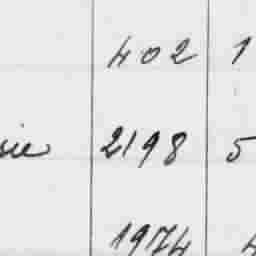 402 1
2198 5
1974 4